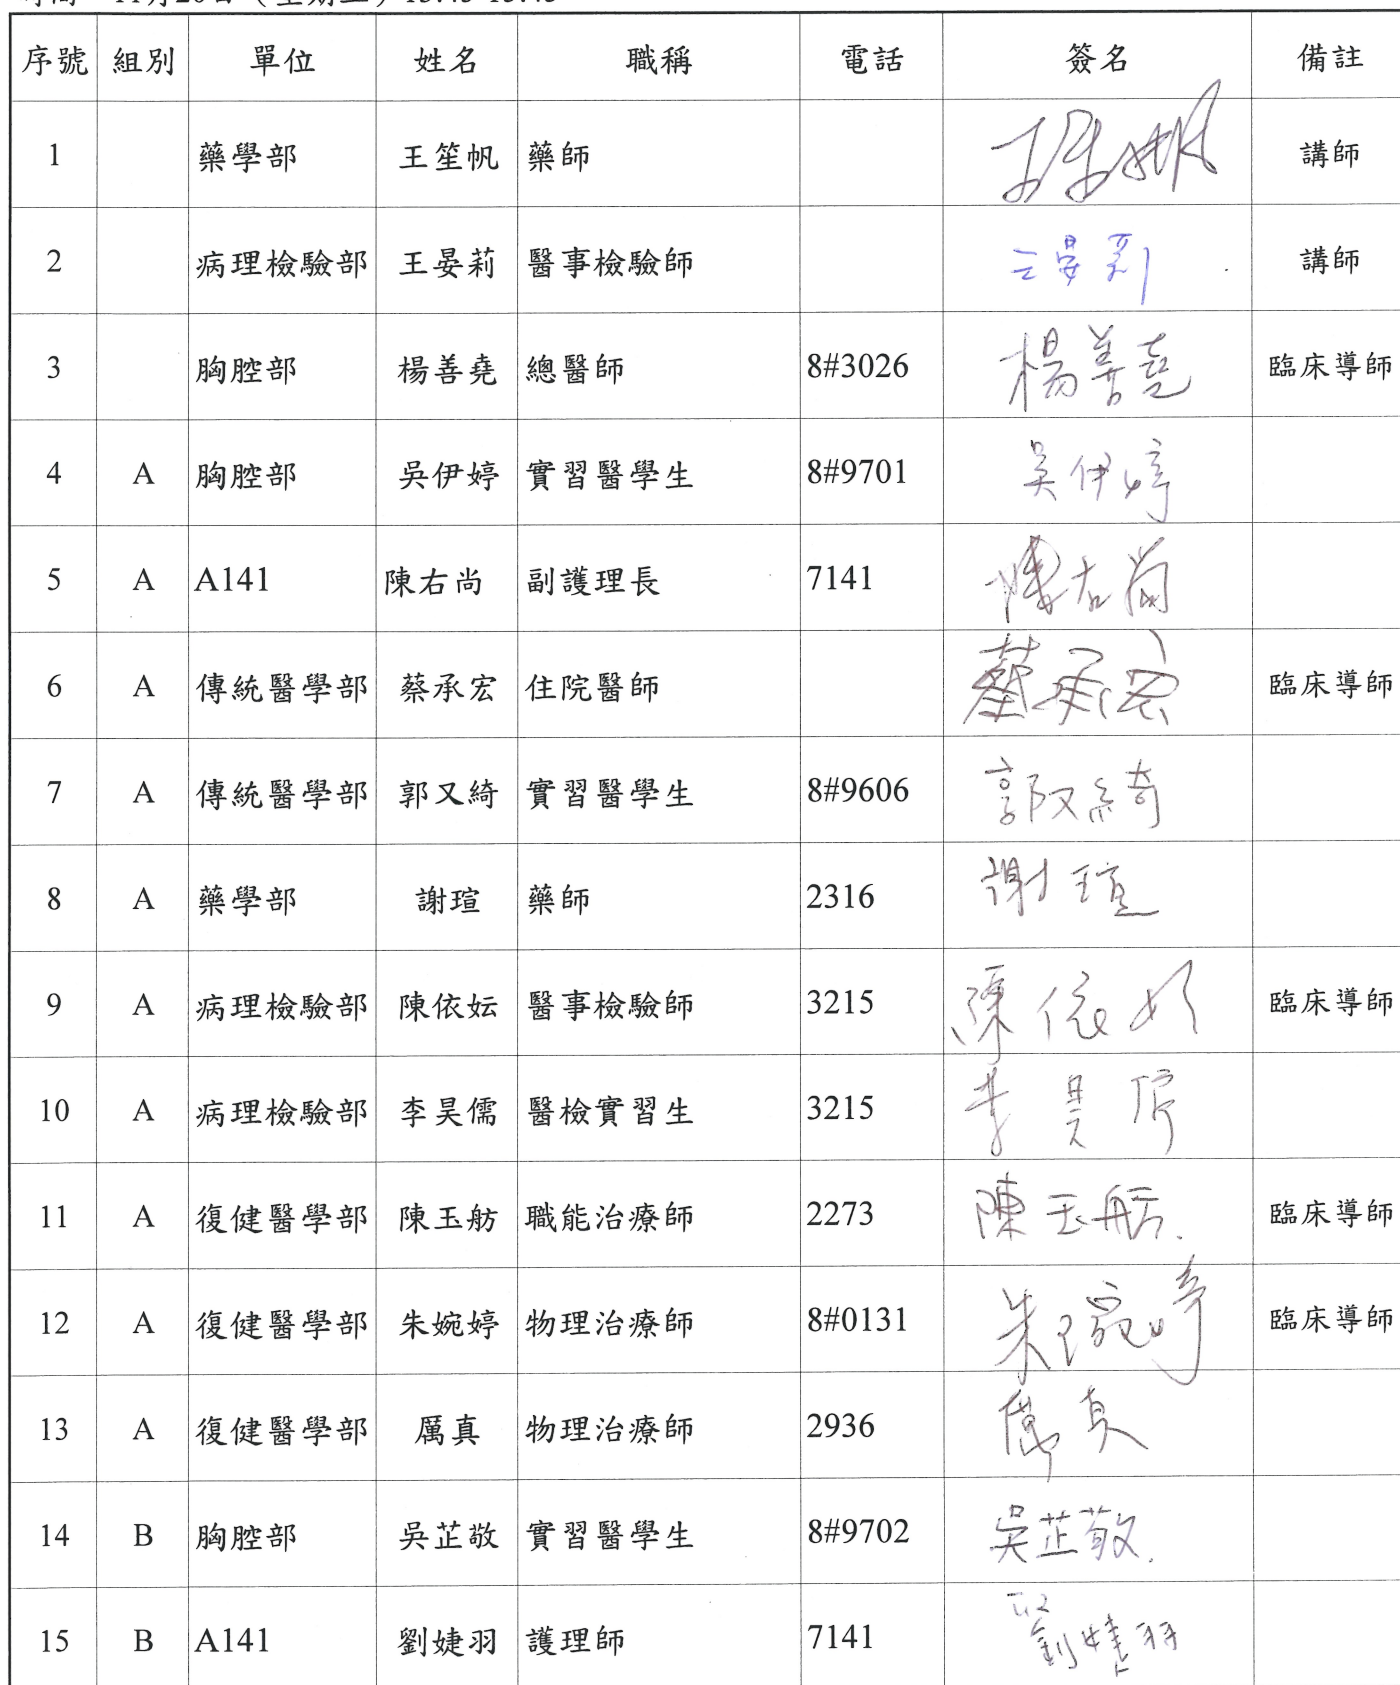 序號 組別 單位 姓名 職稱 電話 簽名 備註
1 藥學部 王笙帆 藥師 講師
2 病理檢驗部 王晏莉 醫事檢驗師 王晏莉 講師
3 胸腔部 楊善堯 總醫師 8#3026 楊善堯 臨床導師
4 A 胸腔部 吳伊婷 實習醫學生 8#9701 吳伊婷
5 A A141 陳右尚 副護理長 7141 陳右尚
6 A 傳統醫學部 蔡承宏 住院醫師 蔡承宏 臨床導師
7 A 傳統醫學部 郭又綺 實習醫學生 8#9606 郭又綺
8 A 藥學部 謝瑄 藥師 2316 謝瑄
9 A 病理檢驗部 陳依妘 醫事檢驗師 3215 陳依妘 臨床導師
10 A 病理檢驗部 李昊儒 醫檢實習生 3215 李昊儒
11 A 復健醫學部 陳玉舫 職能治療師 2273 陳玉舫 臨床導師
12 A 復健醫學部 朱婉婷 物理治療師 8#0131 朱婉婷 臨床導師
13 A 復健醫學部 厲真 物理治療師 2936 厲真
14 B 胸腔部 吳芷敬 實習醫學生 8#9702 吳芷敬
15 B A141 劉婕羽 護理師 7141 劉婕羽